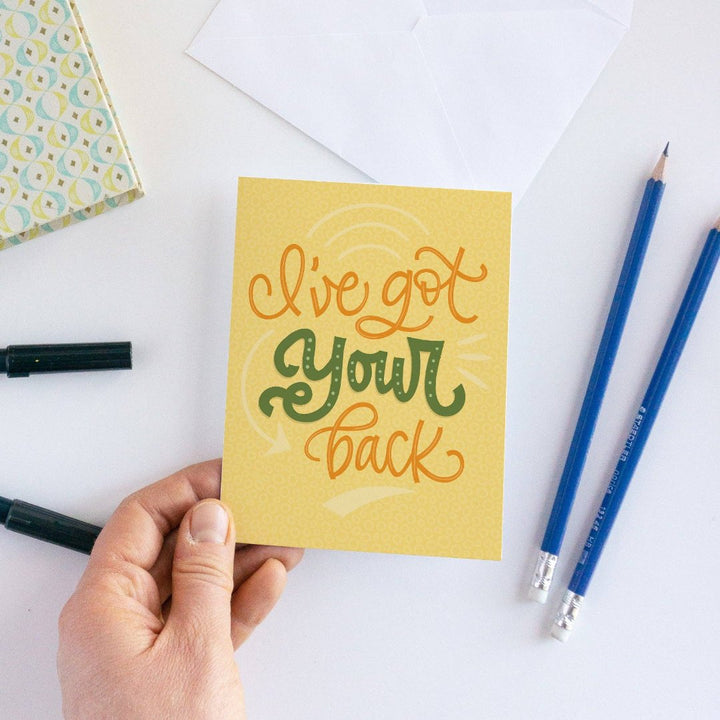 I've got
Your
back
STAEDTLER